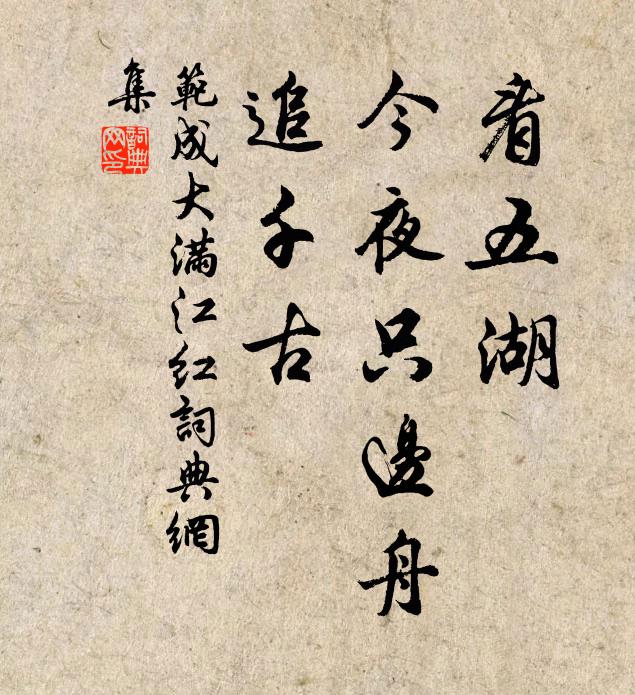 看五湖
今夜只邊舟
追千古
範成大滿江紅詞典網
集
詞典網印